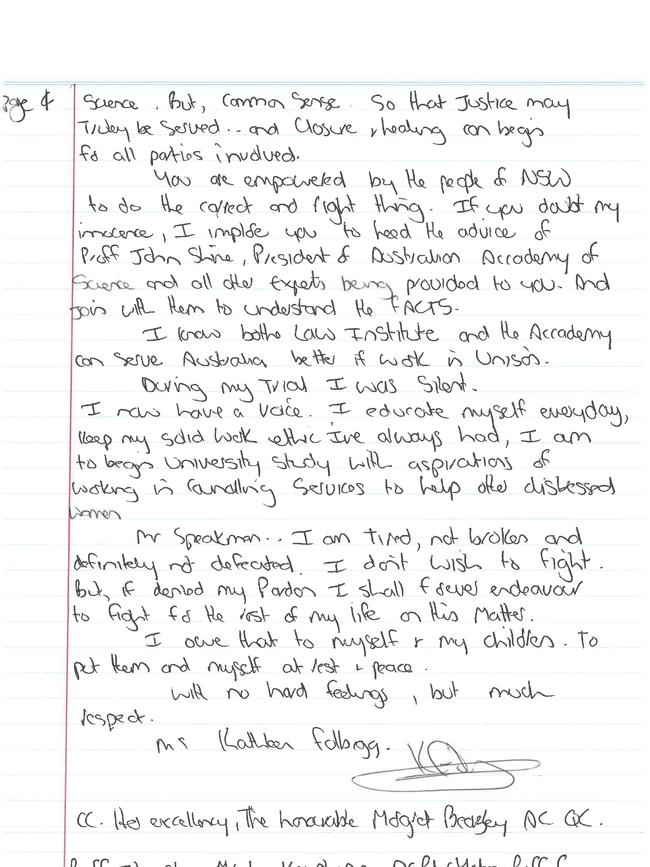 Page 4
Science. But, Common Sense. So that Justice may
Truley be Served... and Closure & healing can begin
for all parties involved.
You are empowered by the people of NSW
to do the correct and right thing. If you doubt my
innocence, I implore you to heed the advice of
Proff John Shine, President of Australian Accademy of
Science and all other Experts being provided to you. And
join with them to understand the FACTS.
I know bothe Law Institute and the Accademy
can serve Australia better if work in Unison.
During my Trial I was Silent.
I now have a Voice. I educate myself everyday,
keep my solid work ethic I've always had, I am
to begin University Study with aspirations of
working in Counselling Services to help other distressed
women
Mr Speakman.. I am Tired, not broken and
definitely not defeated. I don't wish to fight.
But, if denied my Pardon I shall forever endeavour
to fight for the rest of my life on this Matter.
I owe that to myself & my children. To
put them and myself at rest & peace.
With no hard feelings, but much
respect.
Ms Kathleen Folbigg.
CC. Her excellency, The honourable Margret Beazley AC QC.